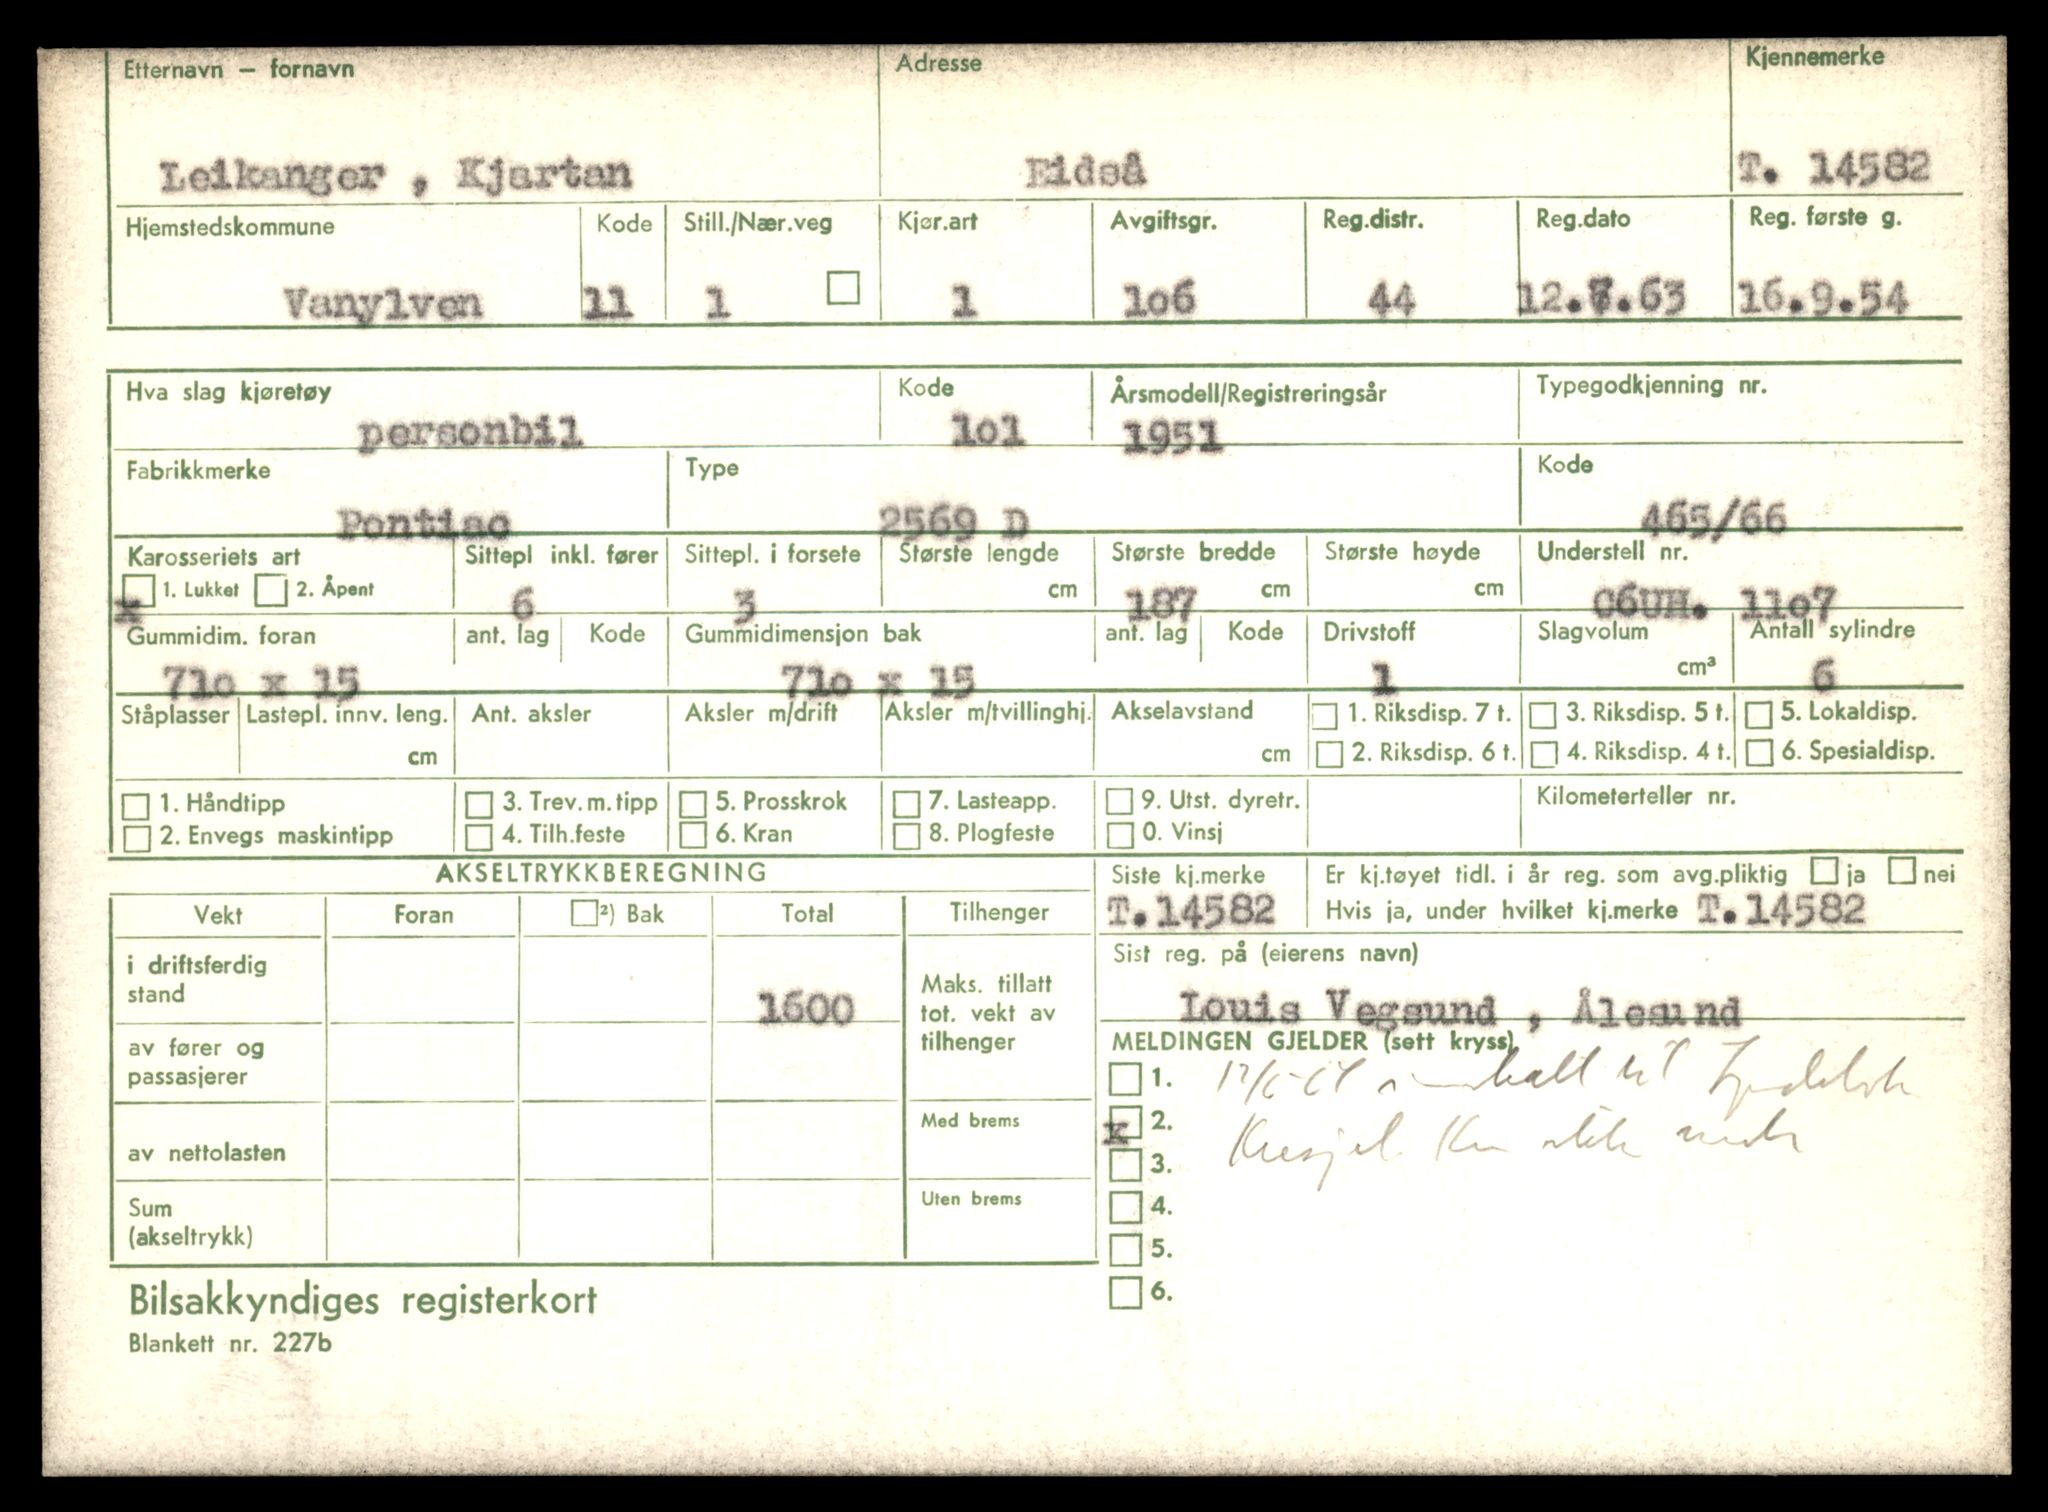 Etternavn – fornavn Adresse Kjennemerke
Leikanger , Kjartan Eidså T. 14582
Hjemstedskommune Kode Still./Nær.veg Kjør.art Avgiftsgr. Reg.distr. Reg.dato Reg. første g.
Vanylven 11 1 1 106 44 12.7.63 16.9.54
Hva slag kjøretøy Kode Årsmodell/Registreringsår Typegodkjenning nr.
personbil 101 1951
Fabrikkmerke Type Kode
Pontiac 2569 D 465/66
Karosseriets art Sittepl inkl. fører Sittepl. i forsete Største lengde Største bredde Største høyde Understell nr.
1. Lukket 2. Åpent cm cm cm
x 6 3 187 C6UH. 1107
Gummidim. foran ant. lag Kode Gummidimensjon bak ant. lag Kode Drivstoff Slagvolum Antall sylindre
cm³
710 x 15 710 x 15 1 6
Ståplasser Lastepl. innv. leng. Ant. aksler Aksler m/drift Aksler m/tvillinghj. Akselavstand 1. Riksdisp. 7 t. 3. Riksdisp. 5 t. 5. Lokaldisp.
cm cm 2. Riksdisp. 6 t. 4. Riksdisp. 4 t. 6. Spesialdisp.
1. Håndtipp 3. Trev. m. tipp 5. Prosskrok 7. Lasteapp. 9. Utst. dyretr. Kilometerteller nr.
2. Envegs maskintipp 4. Tilh.feste 6. Kran 8. Plogfeste 0. Vinsj
AKSELTRYKKBEREGNING Siste kj.merke Er kj.tøyet tidl. i år reg. som avg.pliktig ja nei
T.14582 Hvis ja, under hvilket kj.merke T.14582
Vekt Foran ²) Bak Total Tilhenger
Sist reg. på (eierens navn)
Louis Vegsund , Ålesund
i driftsferdig
stand
1600
Maks. tillatt
tot. vekt av
tilhenger
av fører og
passasjerer
Med brems
av nettolasten
Uten brems
Sum
(akseltrykk)
MELDINGEN GJELDER (sett kryss)
1. til
x 2.
3.
4.
5.
6.
Bilsakkyndiges registerkort
Blankett nr. 227b